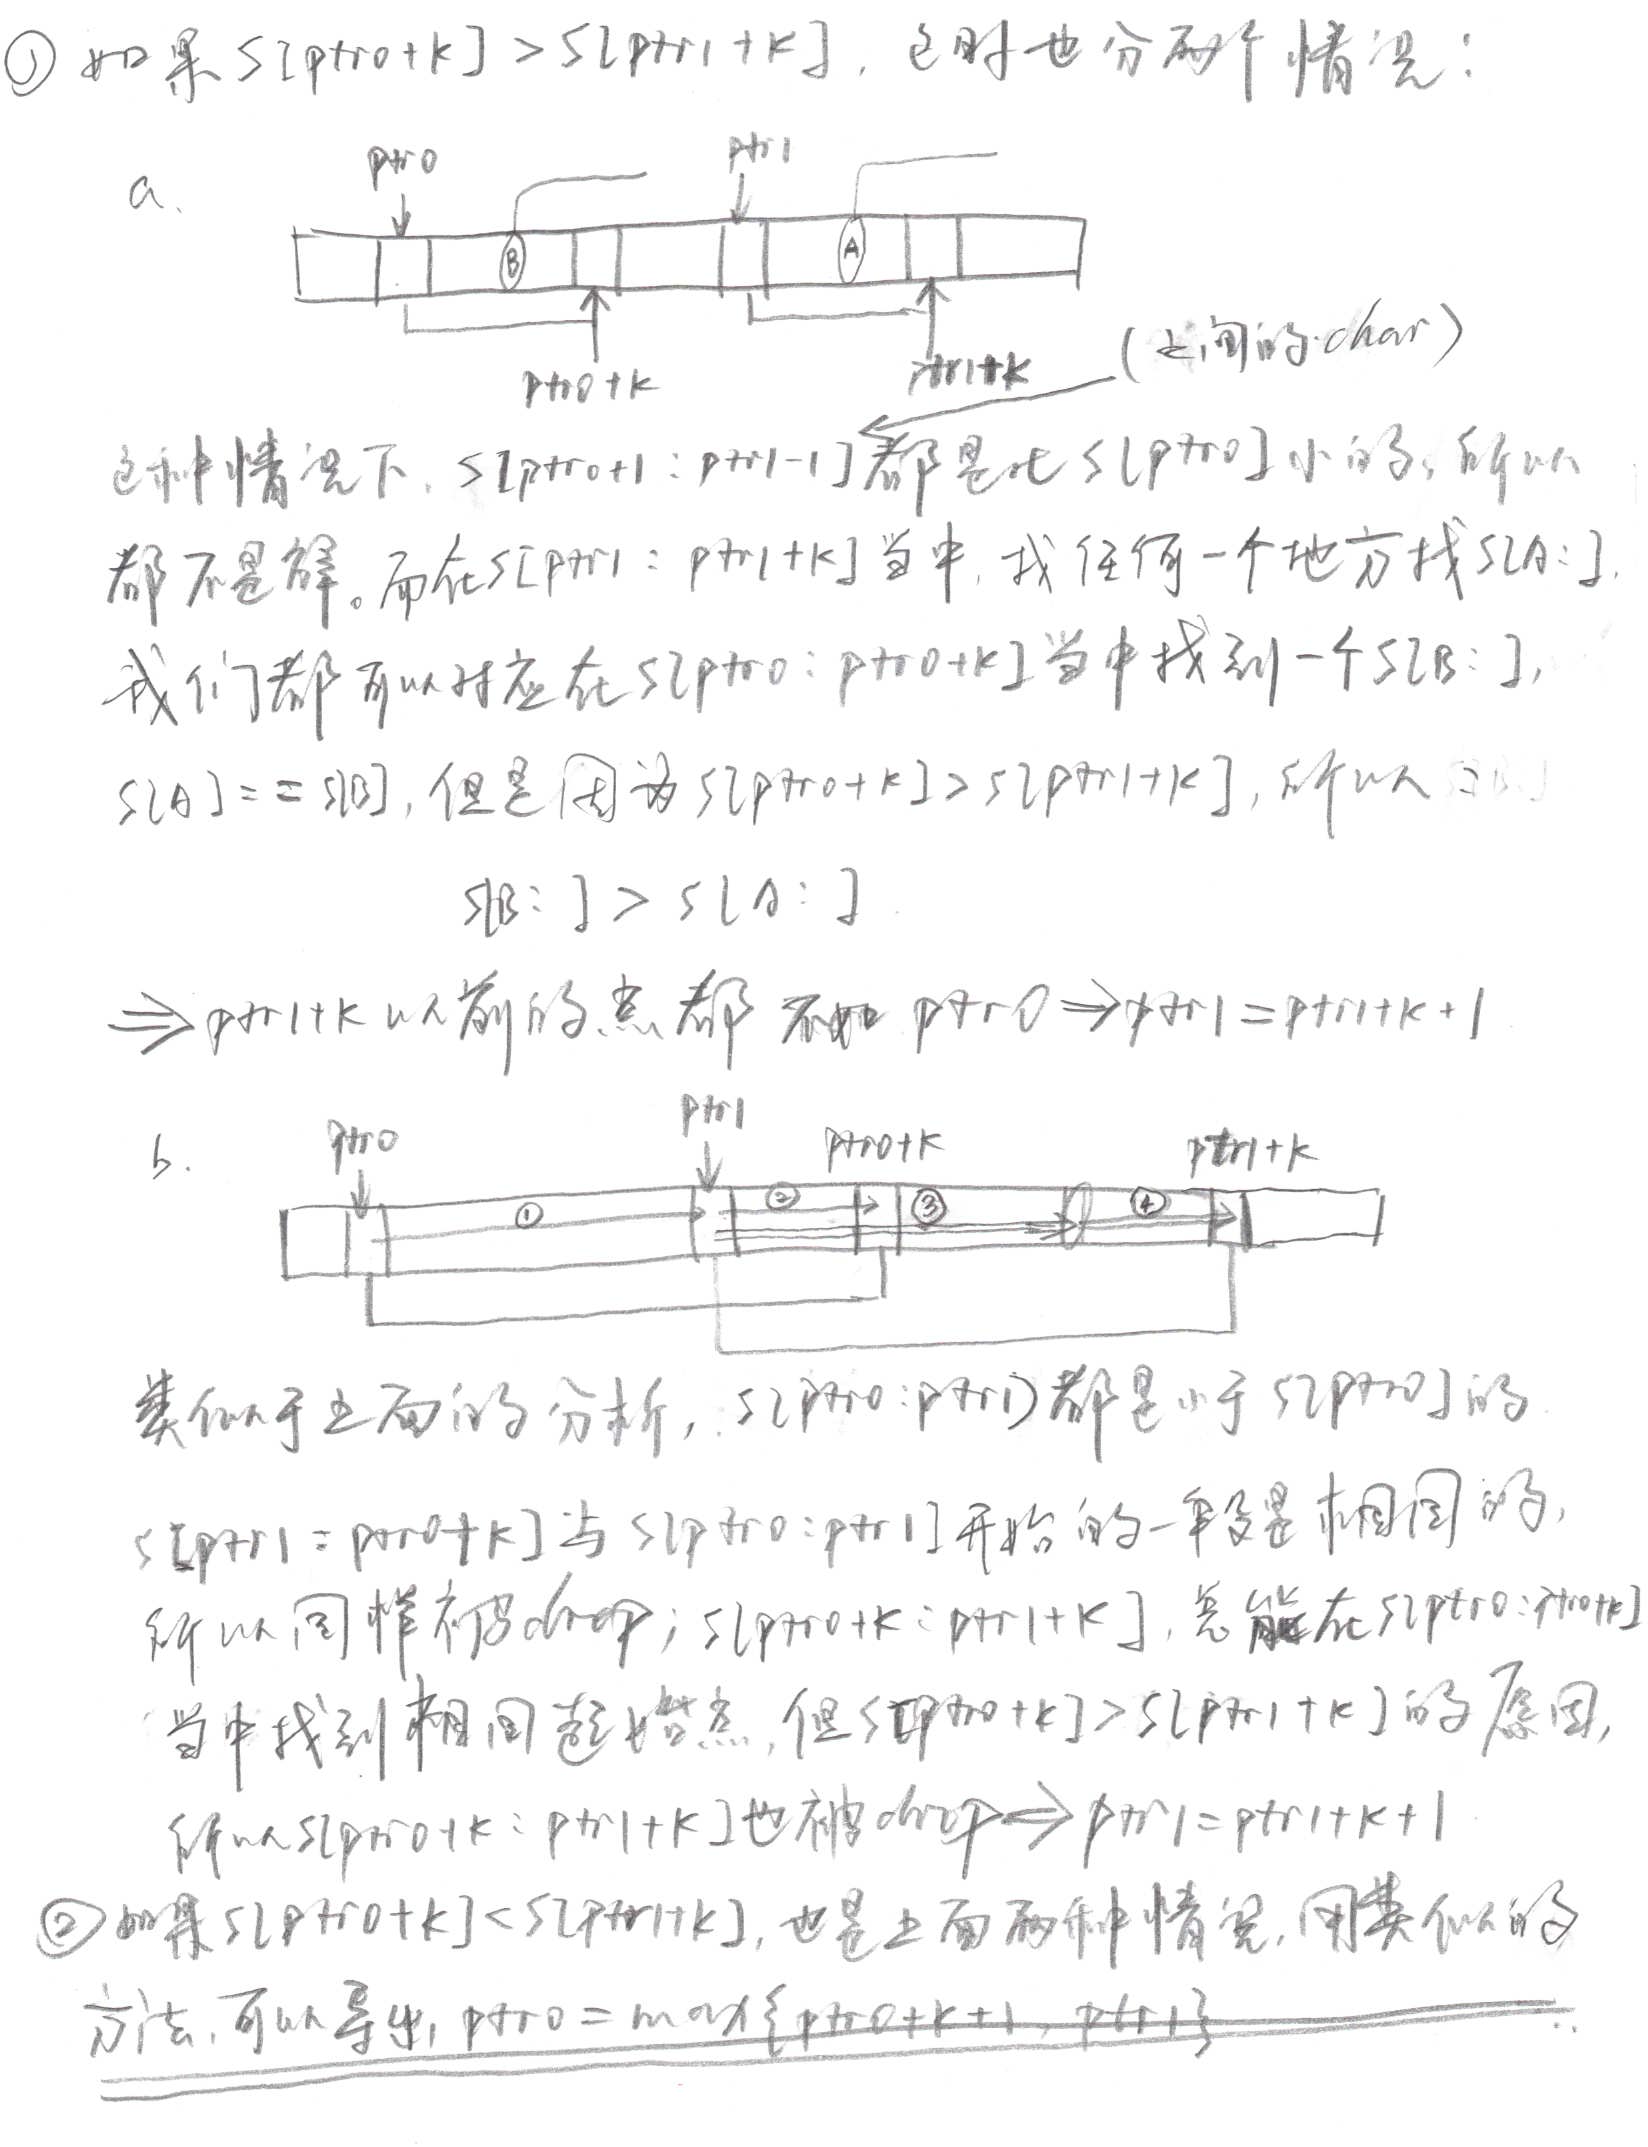 ① 如果 S[ptr0+k] > S[ptr1+k], 这时也分两个情况:
a.
ptr0
ptr1
B
A
ptr0+k
ptr1+k
(之间的 char)
这种情况下, S[ptr0+1 : ptr1-1] 都是比 S[ptr0] 小的, 所以
都不是解。而在 S[ptr1 : ptr1+k] 当中, 找任何一个地方找 S[A:],
我们都可以对应在 S[ptr0 : ptr0+k] 当中找到一个 S[B:],
S[A] == S[B], 但是因为 S[ptr0+k] > S[ptr1+k], 所以
S[B:] > S[A:]
⇒ ptr1+k 以前的点都不如 ptr0 ⇒ ptr1 = ptr1+k+1
b.
ptr0
ptr1
ptr0+k
ptr1+k
① ② ③ ④
类似于上面的分析, S[ptr0:ptr1) 都是小于 S[ptr0] 的
S[ptr1 : ptr0+k] 与 S[ptr0 : ptr1] 开始的一段是相同的,
所以同样被 drop; S[ptr0+k : ptr1+k], 总能在 S[ptr0 : ptr0+k]
当中找到相同起始点, 但 S[ptr0+k] > S[ptr1+k] 的原因,
所以 S[ptr0+k : ptr1+k] 也被 drop ⇒ ptr1 = ptr1+k+1
② 如果 S[ptr0+k] < S[ptr1+k], 也是上面两种情况, 用类似的
方法, 可以导出, ptr0 = max{ptr0+k+1, ptr1}